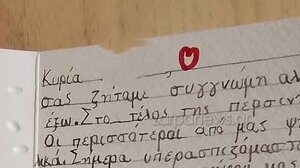 Κυρία
σας ζήταμε συγγνώμη αλ
έξω. Στο τέλος της περσιν
Οι περισσότεροι απο μας ψ
και Σήμερα υπερασπιζόμαστ